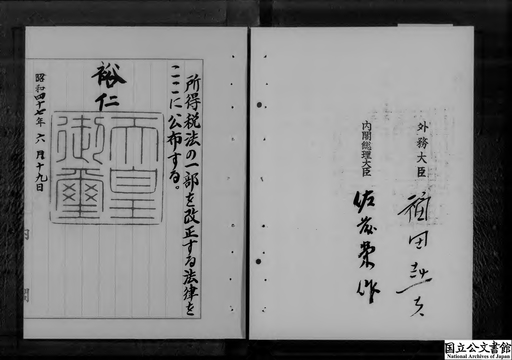 所得税法の一部を改正する法律を
ここに公布する。
裕仁
天皇
御璽
昭和四十七年六月十九日
内閣
外務大臣
福田赳夫
内閣総理大臣
佐藤榮作
国立公文書館
National Archives of Japan